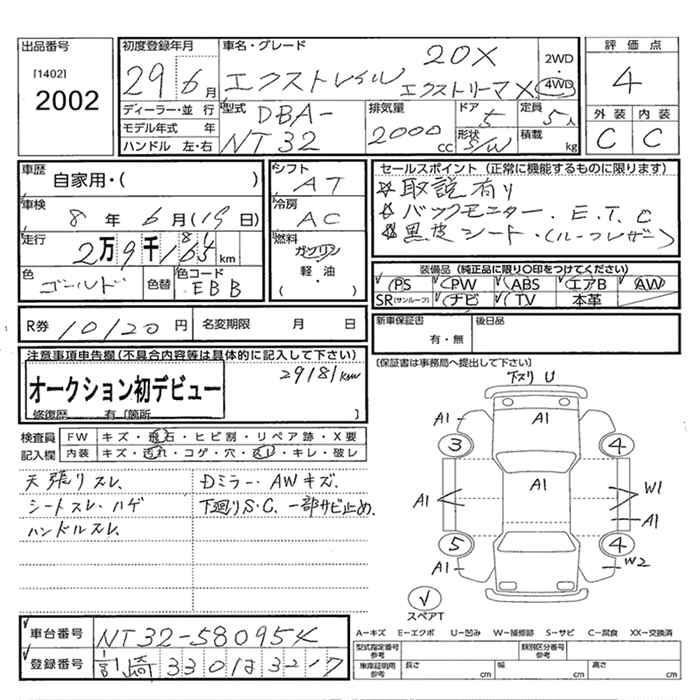 出品番号
[1402]
2002
初度登録年月
29 6 月
車名・グレード
20X
エクストレイル エクストリーマX
2WD
・
4WD
評価点
4
外装 内装
C C
ディーラー・並行
モデル年式 年
ハンドル 左・右
型式
DBA-
NT32
排気量
2000 cc
ドア
5
形状
S/W
定員
5人
積載
kg
車歴
自家用・( )
車検
8 年 6 月 (19 日)
走行
2万9千 km
色
ゴールド
色替
色コード
EBB
シフト
AT
冷房
AC
燃料
ガソリン
・
軽・油
( )
セールスポイント (正常に機能するものに限ります)
☆取説有り
☆バックモニター. E.T.C
☆黒皮シート.(ルーフレザー)
装備品 (純正品に限り○印をつけてください)
PS PW ABS エアB AW
SR(サンルーフ) ナビ TV 本革
R券 10120 円
名変期限 月 日
新車保証書
有・無
後日品
[保証書は事務局へ提出して下さい]
注意事項車申告欄(不具合内容等は具体的に記入して下さい)
29181km
オークション初デビュー
修復歴 有 [箇所 ]
検査員
記入欄
FW キズ・飛石・ヒビ割・リペア跡・X要
内装 キズ・汚れ・コゲ・穴・スレ・キレ・破レ
天張りスレ
シートスレ.ハゲ
ハンドルスレ
Dミラー. AWキズ.
下廻りS.C. 一部サビ止め.
下スリ U
A1 A1
3 4
A1
A1 W1
A1
5 4
A1 W2
スペアT
A-キズ E-エクボ U-凹み W-補修跡 S-サビ C-腐食 XX-交換済
車台番号
NT32-580954
登録番号
宮崎 330 は 3217
型式指定番号
参考
類別区分番号
参考
車庫証明用
参考
長さ cm
幅 cm
高さ cm